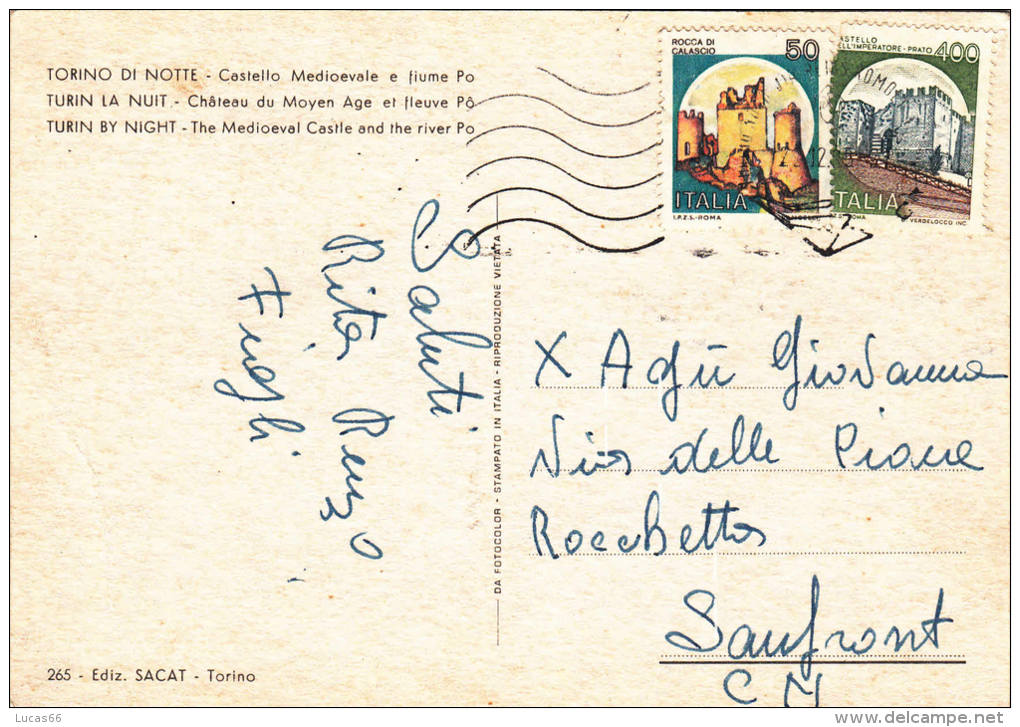 TORINO DI NOTTE - Castello Medioevale e fiume Po
TURIN LA NUIT - Château du Moyen Age et fleuve Pô
TURIN BY NIGHT - The Medioeval Castle and the river Po
ROCCA DI
CALASCIO
50
ITALIA
I.P.Z.S.-ROMA
ASTELLO
ELL'IMPERATORE - PRATO
400
TALIA
ROMA
VERDELOCCO INC.
Saluti
Rita Renzo
Figli
DA FOTOCOLOR - STAMPATO IN ITALIA - RIPRODUZIONE VIETATA
X Agù Giovanna
Via delle Piane
Rocchetta
Sanfront
CN
265 - Ediz. SACAT - Torino
Lucas66
www.delcampe.net